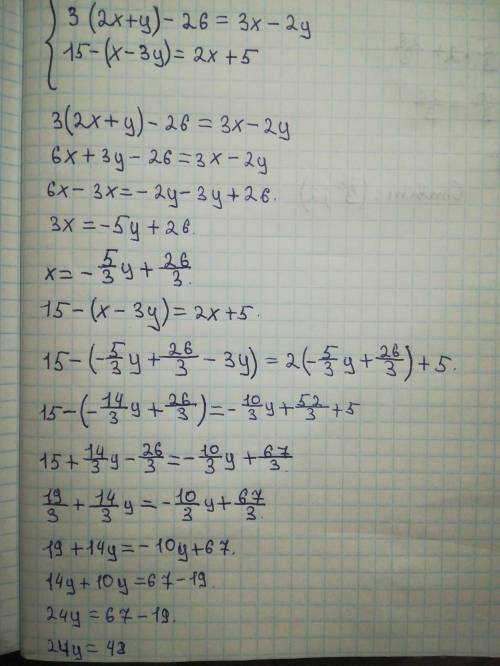 { 3(2x+y)-26=3x-2y
15-(x-3y)=2x+5
3(2x+y)-26=3x-2y
6x+3y-26=3x-2y
6x-3x=-2y-3y+26.
3x=-5y+26.
x=-5/3y+26/3.
15-(x-3y)=2x+5.
15-(-5/3y+26/3-3y)=2(-5/3y+26/3)+5.
15-(-14/3y+26/3)=-10/3y+52/3+5
15+14/3y-26/3=-10/3y+67/3.
19/3+14/3y=-10/3y+67/3.
19+14y=-10y+67.
14y+10y=67-19.
24y=67-19.
24y=48